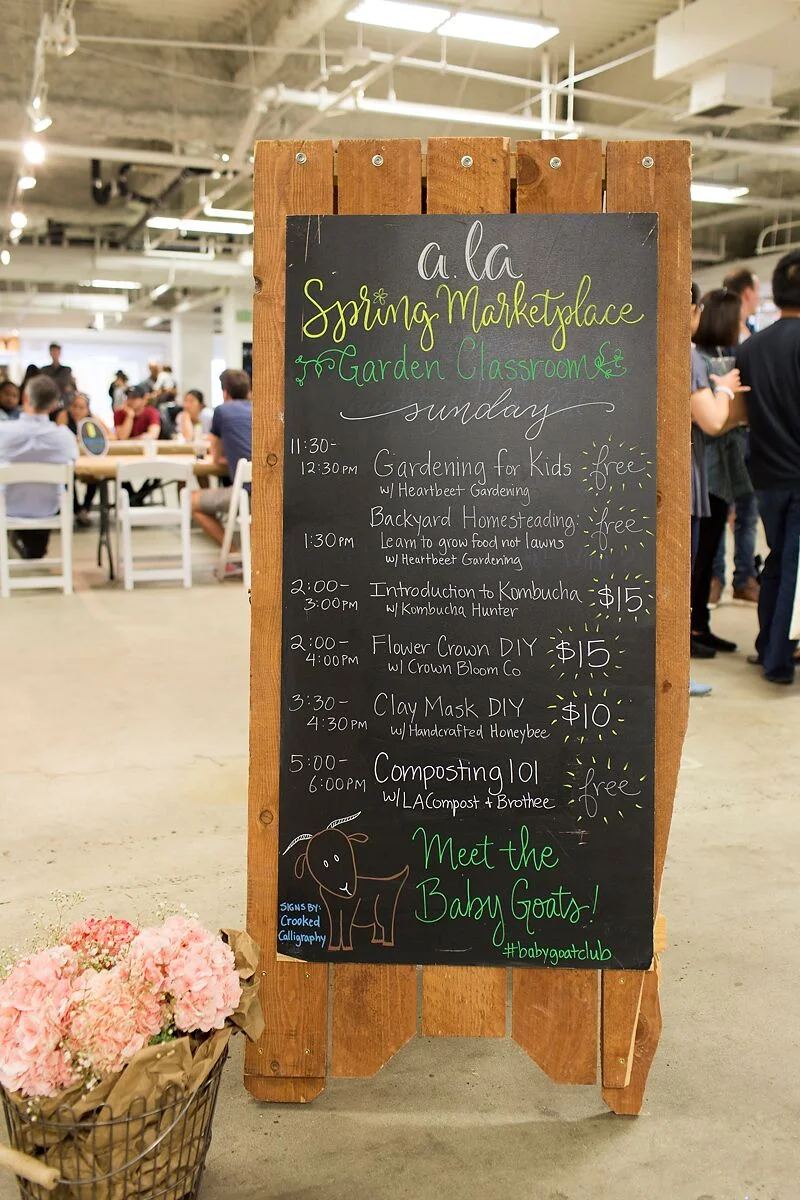 a la
Spring Marketplace
Garden Classroom
sunday
11:30-
12:30PM Gardening for Kids free
w/ Heartbeet Gardening
Backyard Homesteading: free
1:30PM Learn to grow food not lawns
w/ Heartbeet Gardening
2:00- Introduction to Kombucha $15
3:00PM w/ Kombucha Hunter
2:00- Flower Crown DIY $15
4:00PM w/ Crown Bloom Co
3:30- Clay Mask DIY $10
4:30PM w/ Handcrafted Honeybee
5:00- Composting 101 free
6:00PM w/ LA Compost + Brothee
Meet the
Baby Goats!
#babygoatclub
SIGNS BY:
Crooked
Calligraphy